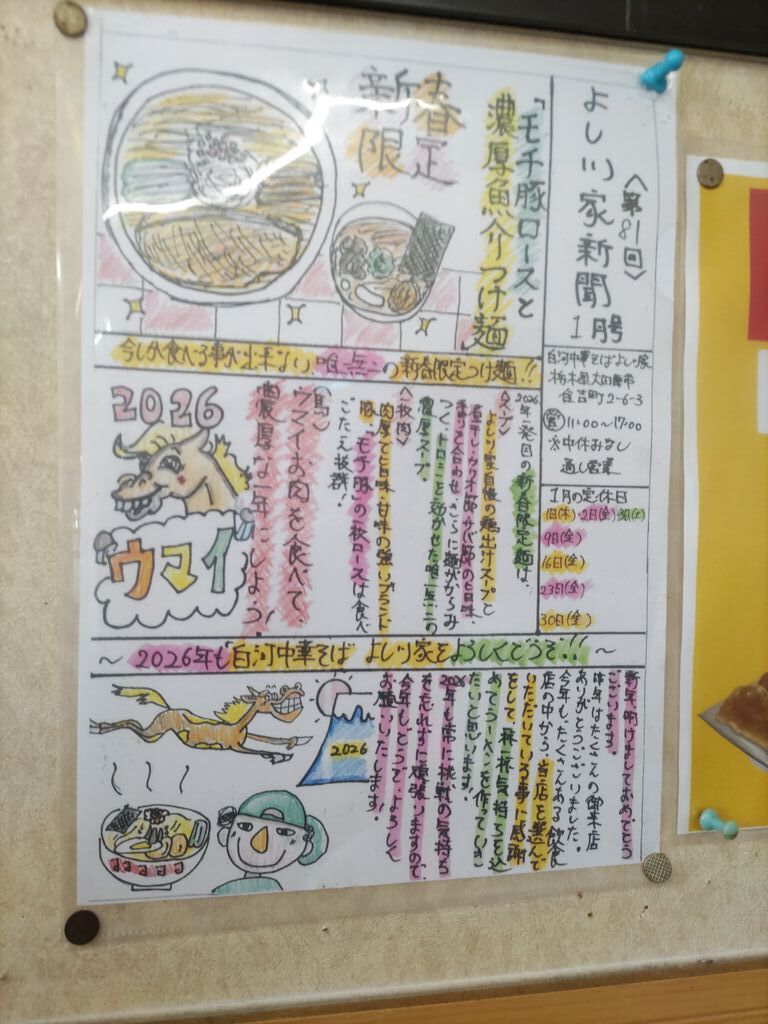 よし川家新聞 1月号
〈第81回〉
白河中華そば よし川家
栃木県大田原市
住吉町2-6-3
営 11:00〜17:00
※中休みなし
通し営業
1月の定休日
1日(木)・2日(金)・3日(土)
9日(金)
16日(金)
23日(金)
30日(金)
「モチ豚ロースと
濃厚魚介つけ麺」
新春
限定
今しか食べる事が出来ない唯一無二の新春限定つけ麺!!
2026年一発目の新春限定麺は、
〈スープ〉
よし川家自慢の鶏出汁スープと
煮干し・カツオ節・サバ節の旨味
香りを合わせ、さらに麺がからみ
つく、トロミを効かせた唯一無二の
濃厚スープ。
〈一枚肉〉
肉厚で旨味・甘味の強いブランド
豚、「モチ豚」の一枚ロースは食べ
ごたえ抜群!
〈馬〉
ウマイお肉を食べて、
濃厚な年にしよう!
2026
ウマイ
〜2026年も白河中華そば よし川家をよろしくどうぞ!!〜
新年、明けましておめでとう
ございます。
昨年はたくさんの御来店
ありがとうございました。
今年も、たくさんある飲食
店の中から、当店を選んで
いただいている事に感謝
をして、一杯一杯気持ちを込
めてラーメンを作っていき
たいと思います。
2026年も常に挑戦の気持ち
を忘れずに頑張りますので、
今年もどうぞ、よろしく
お願いいたします!
2026